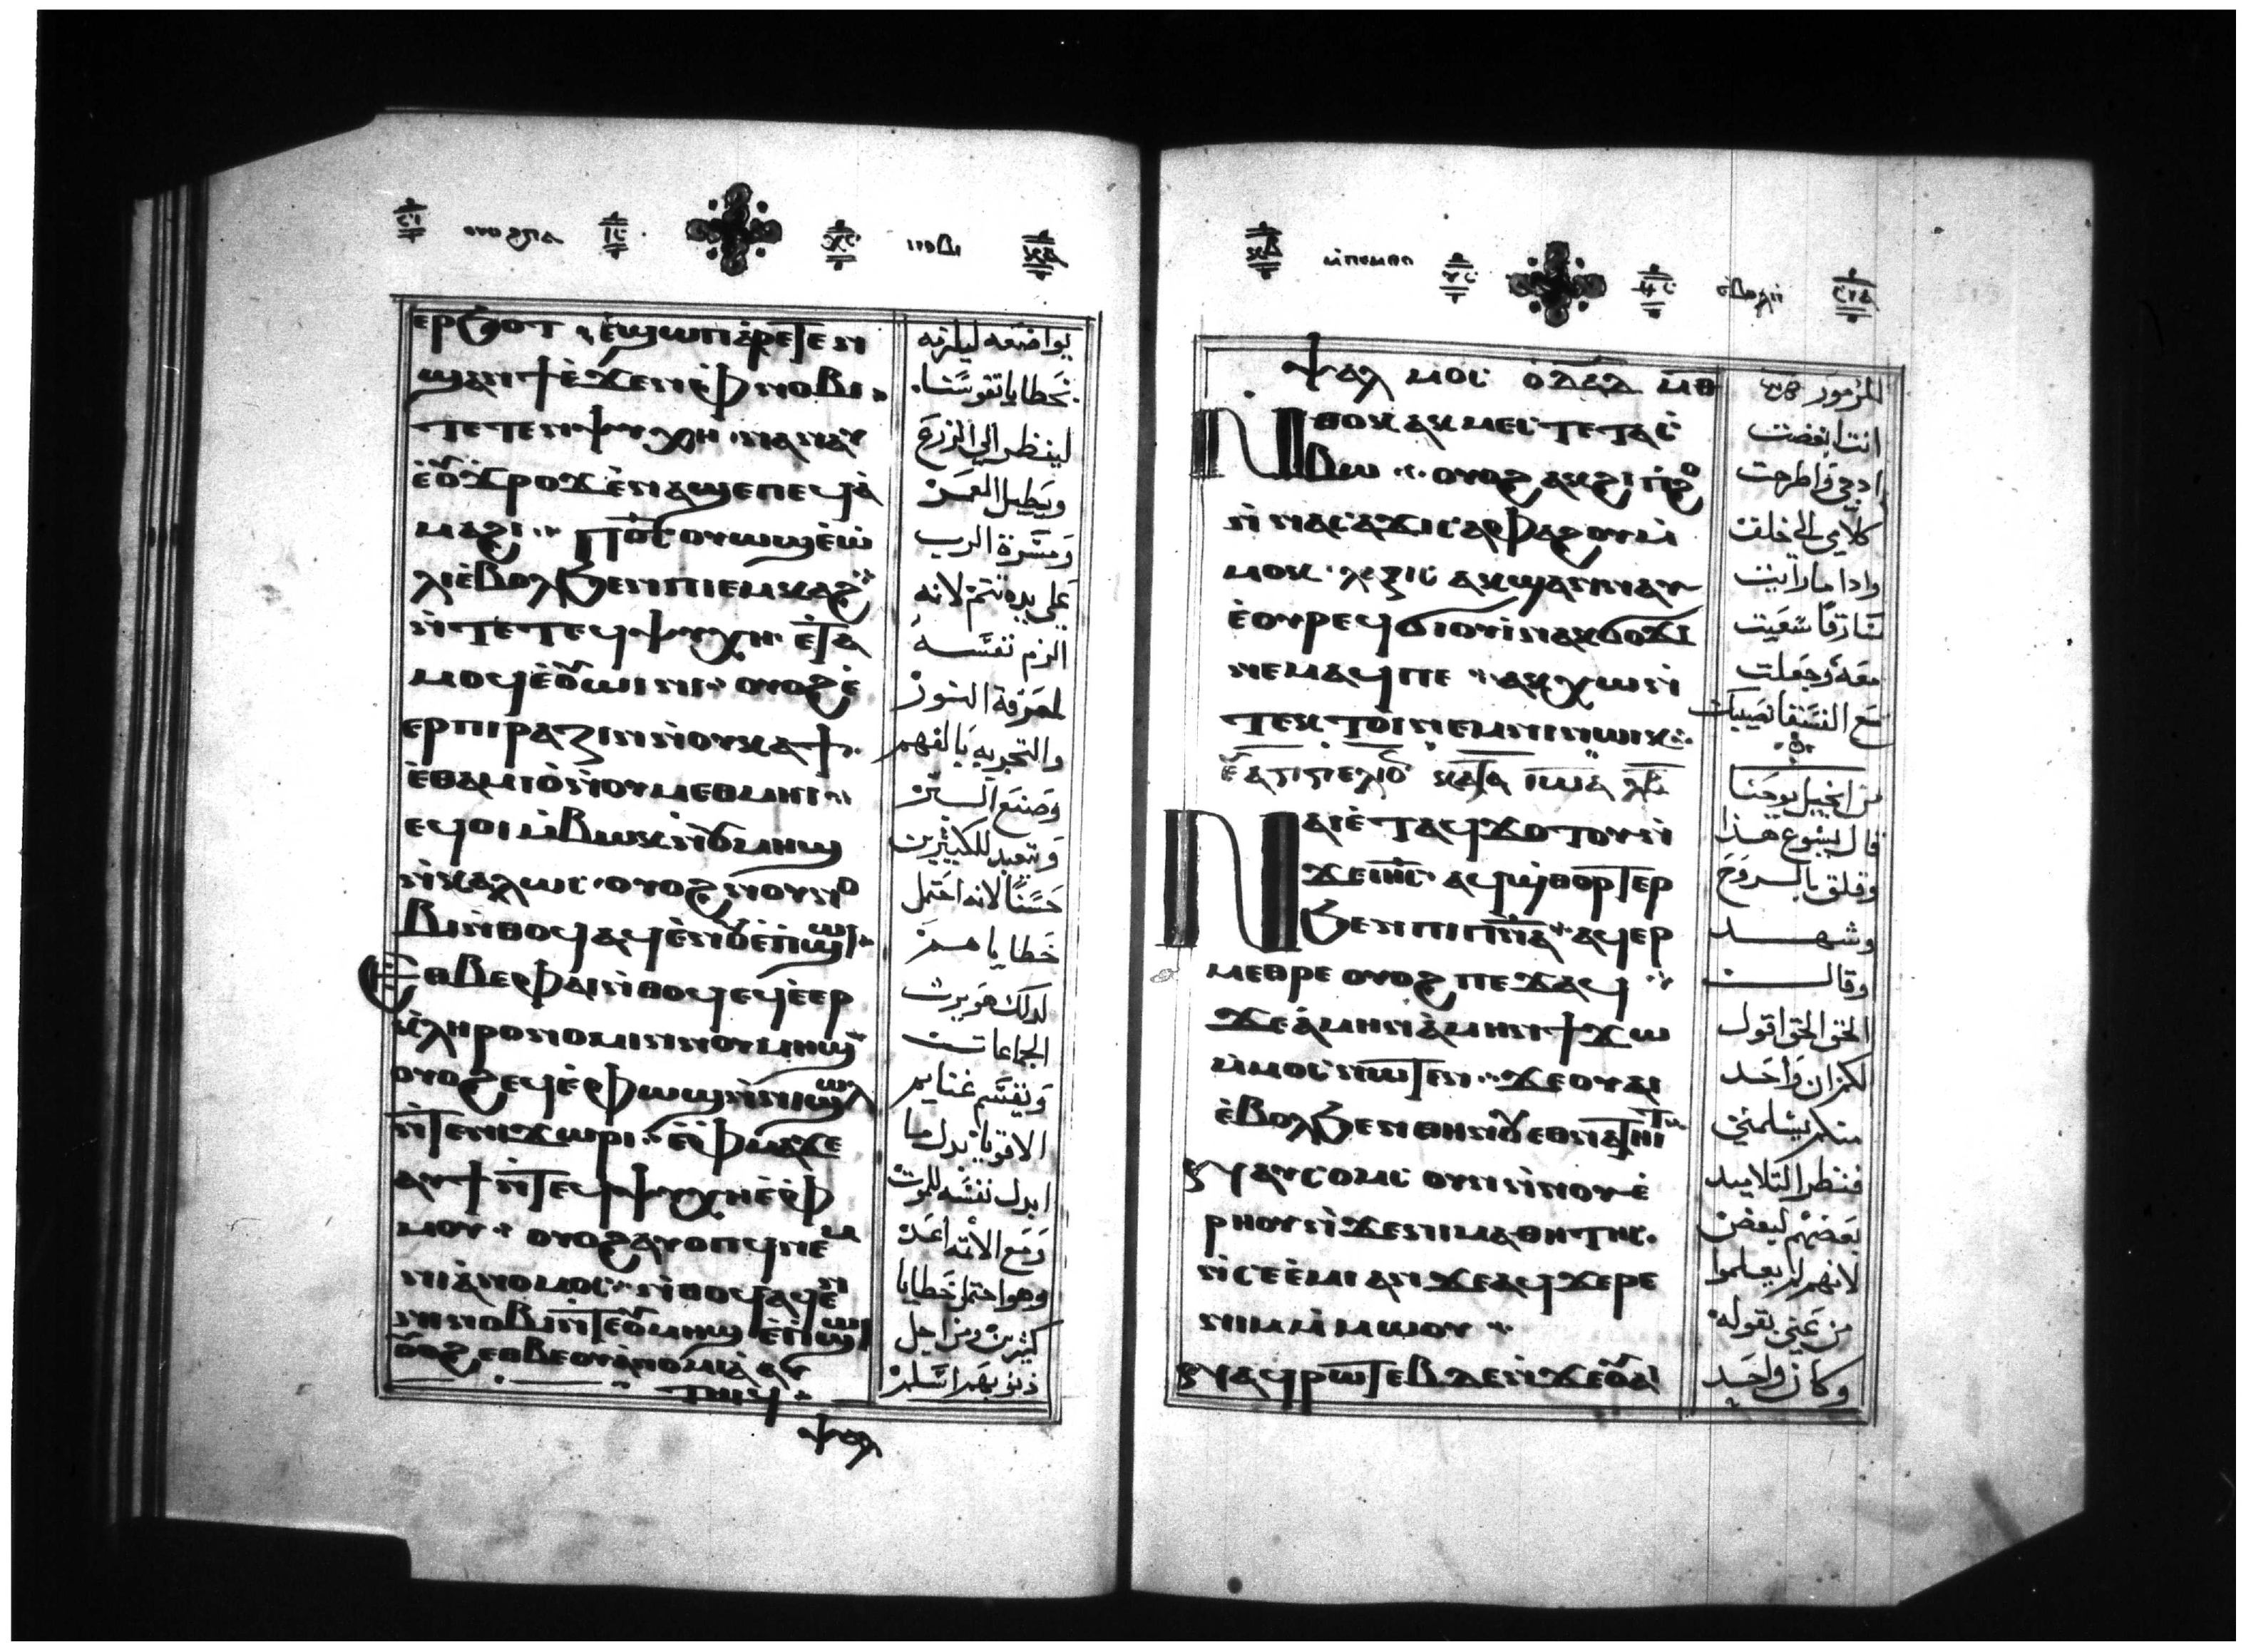 ⲉⲣϧⲟⲧ ⲉϣⲱⲡ ⲁⲣⲉⲧⲉⲛ
ϣⲁⲛϯ ⲉϫⲉⲛ ⲉⲫⲛⲟⲃⲓ
ⲧⲉⲧⲉⲛⲯⲩⲭⲏ ⲛⲁⲛⲁⲩ
ⲉⲟⲩϫⲣⲟϫ ⲉⲛⲁϣⲉ ⲡⲉϥⲁ
ⲙⲁϩⲓ ⲡϭⲥ ⲟⲩⲱϣ ⲉⲱ
ⲗⲓ ⲉⲃⲟⲗϧⲉⲛ ⲡⲓⲉⲙⲕⲁϩ
ⲛⲧⲉ ⲧⲉϥⲯⲩⲭⲏ ⲉⲧⲁ
ⲙⲟϥ ⲉⲟⲩⲱⲓⲛⲓ ⲟⲩⲟϩ ⲉ
ⲉⲣⲡⲓⲣⲁⲍⲓⲛ ⲛⲟⲩⲕⲁϯ
ⲉⲑⲁⲙⲓⲟ ⲛⲟⲩⲙⲉⲑⲙⲏⲓ
ⲉϥⲟⲓ ⲙⲃⲱⲕ ⲛⲟⲩⲙⲏϣ
ⲛⲕⲁⲗⲱⲥ ⲟⲩⲟϩ ⲛⲟⲩⲛⲟ
ⲃⲓ ⲛⲑⲟϥ ⲁϥⲉⲛⲟⲩ ⲉⲡϣⲱⲓ
ⲉⲑⲃⲉⲫⲁⲓ ⲛⲑⲟϥ ⲉϥⲉⲉⲣ
ⲕⲗⲏⲣⲟⲛⲟⲙⲓⲛ ⲛⲟⲩⲙⲏϣ
ⲟⲩⲟϩ ⲉϥⲉⲫⲱϣ ⲛⲛⲓϣⲱⲗ
ⲛⲧⲉⲛⲓϫⲱⲣⲓ ⲉⲫⲙⲁ ϫⲉ
ⲁⲩϯ ⲛⲧⲉϥⲯⲩⲭⲏ ⲉⲫ
ⲙⲟⲩ ⲟⲩⲟϩ ⲁⲩⲟⲡϥ ⲛⲉⲙ
ⲛⲓⲁⲛⲟⲙⲟⲥ ⲛⲑⲟϥ ⲁϥⲉⲛ
ⲛⲓⲛⲟⲃⲓ ⲛⲧⲉⲟⲩⲙⲏϣ ⲉⲡϣⲱⲓ
ⲟⲩⲟϩ ⲉⲑⲃⲉ ⲟⲩⲁⲛⲟⲙⲓⲁ ⲁⲩ
ⲧⲏⲓϥ
ⲯⲁⲗ
يواضعه ليلزمه
لينظر الي الزرع
ويطيل العمر
ومسرة الرب
علي يده تتم لانه
الزم نفسه
لمعرفة النور
والتجربه بالفهم
وصنع البر
وتعبد للكثيرين
حسنا لانه احتمل
خطاياهم
لدلك هو يرث
الجماعات
ويقسم غنايم
الاقويا بدل ما
ابدل نفسه للموت
ومع الاتمه اعد
وهو احتمل خطايا
كثيرين ومن اجل
ذنوبهم اسلم
ⲯⲁⲗⲙⲟⲥ ⲟ ⲇⲁⲇ ⲙⲑ
ⲛⲑⲟⲕ ⲁⲕⲙⲉⲥⲧⲉ ⲧⲁⲥ
ⲃⲱ ⲟⲩⲟϩ ⲁⲕϩⲓⲟⲩⲓ
ⲛⲛⲁⲥⲁϫⲓ ⲥⲁⲫⲁϩⲟⲩ ⲙ
ⲙⲟⲕ ⲗⲉⲝⲓⲥ ⲁⲕϣⲁⲛⲛⲁⲩ
ⲉⲟⲩⲣⲉϥϭⲓⲟⲩⲓ ⲛⲁⲕϭⲟϫⲓ
ⲛⲉⲙⲁϥⲡⲉ ⲁⲕⲭⲱ ⲛ
ⲧⲉⲕⲧⲟⲓ ⲛⲉⲙ ⲛⲓⲛⲱⲓⲕ
ⲉⲩⲁⲅⲅⲉⲗⲓⲟⲛ ⲕⲁⲧⲁ ⲓⲱⲁ ⲗⲃ
ⲛⲁⲓ ⲉⲧⲁϥϫⲟⲧⲟⲩ ⲛ
ϫⲉ ⲓⲏⲥ ⲁϥϣⲑⲟⲣⲧⲉⲣ
ϧⲉⲛ ⲡⲓⲡⲛⲁ ⲁϥⲉⲣ
ⲙⲉⲑⲣⲉ ⲟⲩⲟϩ ⲡⲉϫⲁϥ
ϫⲉ ⲁⲙⲏⲛ ⲁⲙⲏⲛ ϯϫⲱ
ⲙⲙⲟⲥ ⲛⲱⲧⲉⲛ ϫⲉ ⲟⲩⲁⲓ
ⲉⲃⲟⲗϧⲉⲛ ⲑⲏⲛⲟⲩ ⲉⲑⲛⲁⲧⲏⲓⲧ
ⲛⲁⲩⲥⲟⲙⲥ ⲟⲩⲛ ⲛⲛⲟⲩⲉ
ⲣⲏⲟⲩ ⲛϫⲉⲛⲓⲙⲁⲑⲏⲧⲏⲥ
ⲛⲥⲉⲉⲙⲓ ⲁⲛ ϫⲉ ⲁϥϫⲉⲣⲉ
ⲛⲓⲙ ⲙⲙⲱⲟⲩ
ⲛⲁϥⲣⲱⲧⲉⲃ ⲇⲉ ⲛϫⲉ ⲟⲩⲁⲓ
المزمور
انت ابغضت
ادبي واطرحت
كلامي الي خلفت
وادا ما رايت
سارقا سعيت
معه وجعلت
مع الفسقا نصيبك
من انجيل يوحنا
قال يسوع هذا
وقلق بالروح
وشهد
وقال
الحق الحق اقول
لكم ان واحد
منكم يسلمني
فنظر التلاميد
بعضهم لبعض
لانهم لم يعلموا
من عني بقوله
وكان واحد